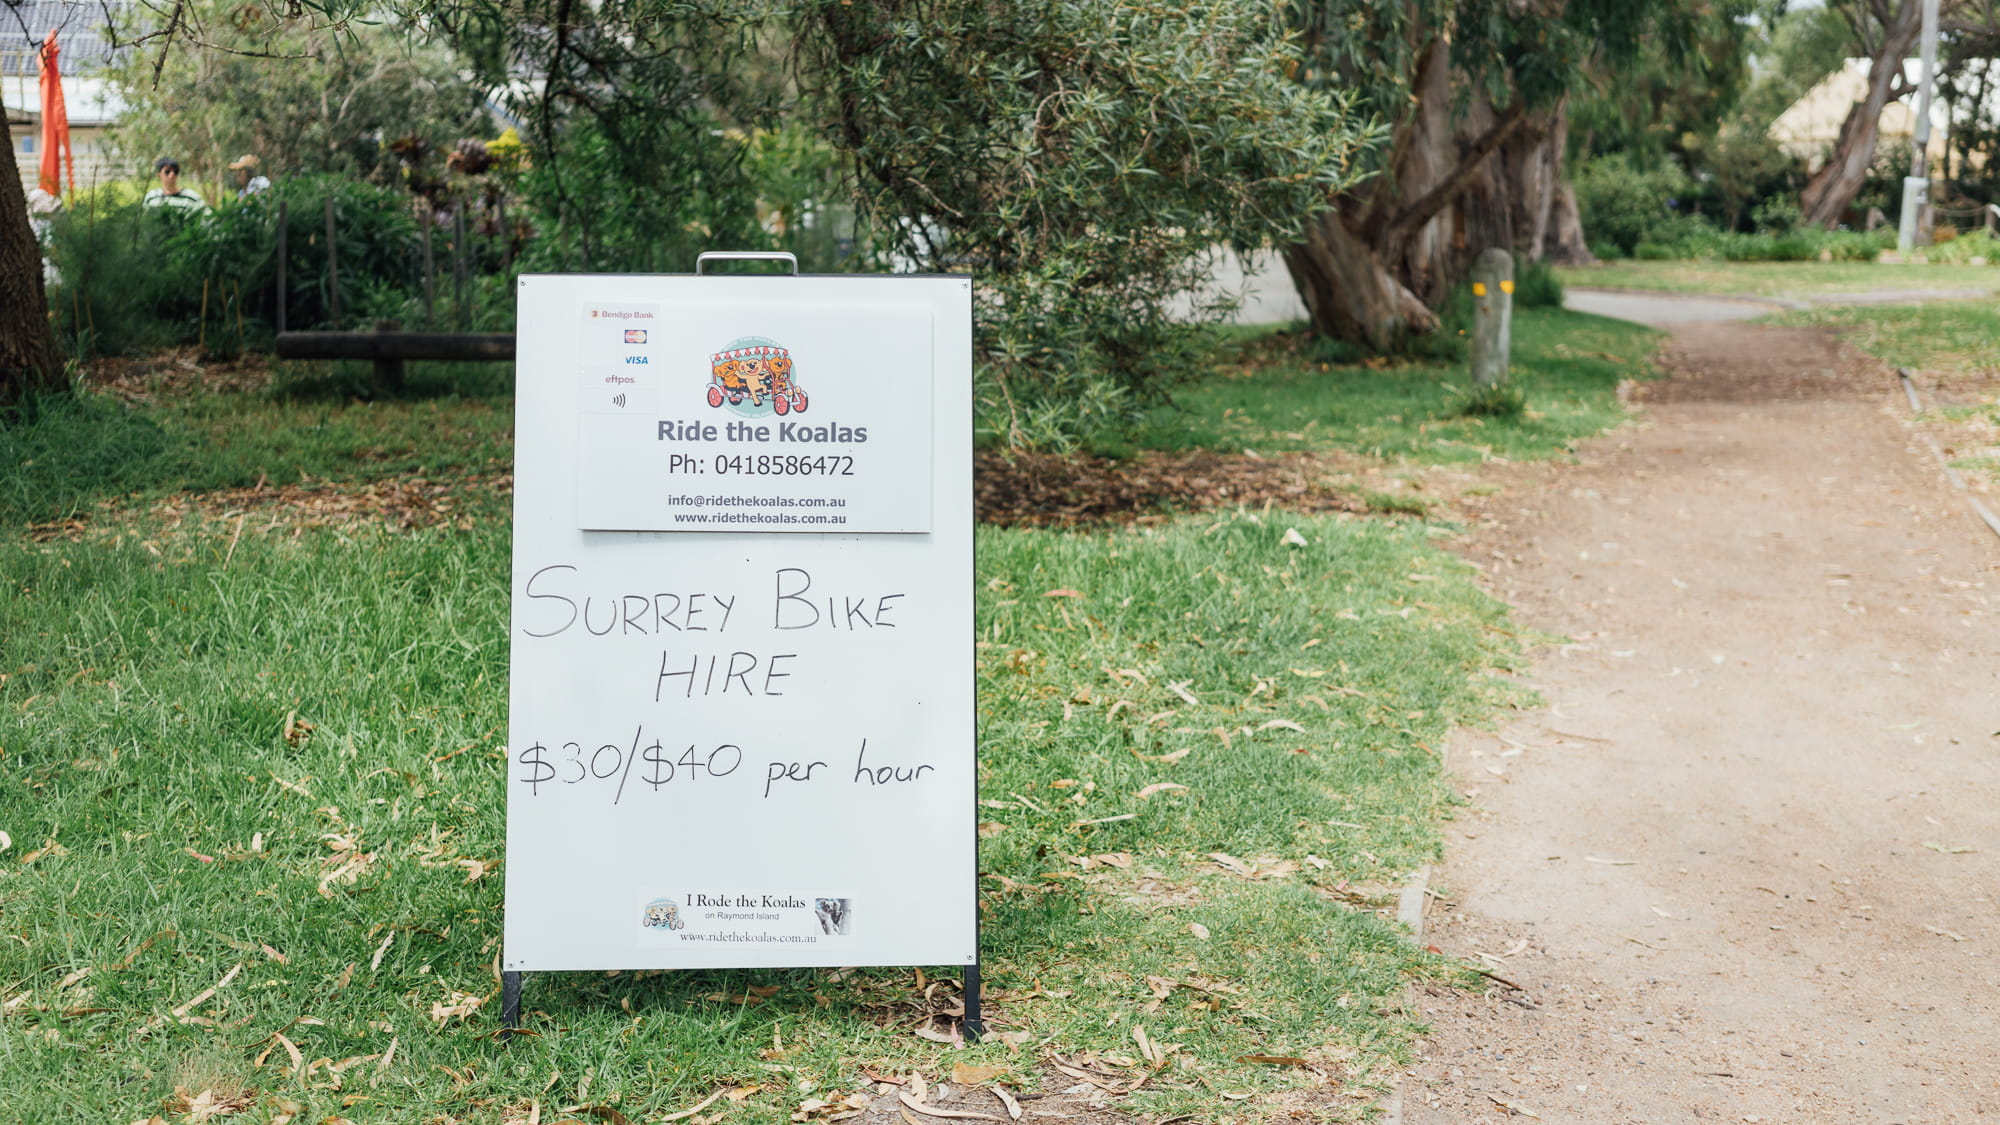 Bendigo Bank
VISA
eftpos
Ride the Koalas
Ph: 0418586472
info@ridethekoalas.com.au
www.ridethekoalas.com.au
SURREY BIKE
HIRE
$30/$40 per hour
I Rode the Koalas
on Raymond Island
www.ridethekoalas.com.au